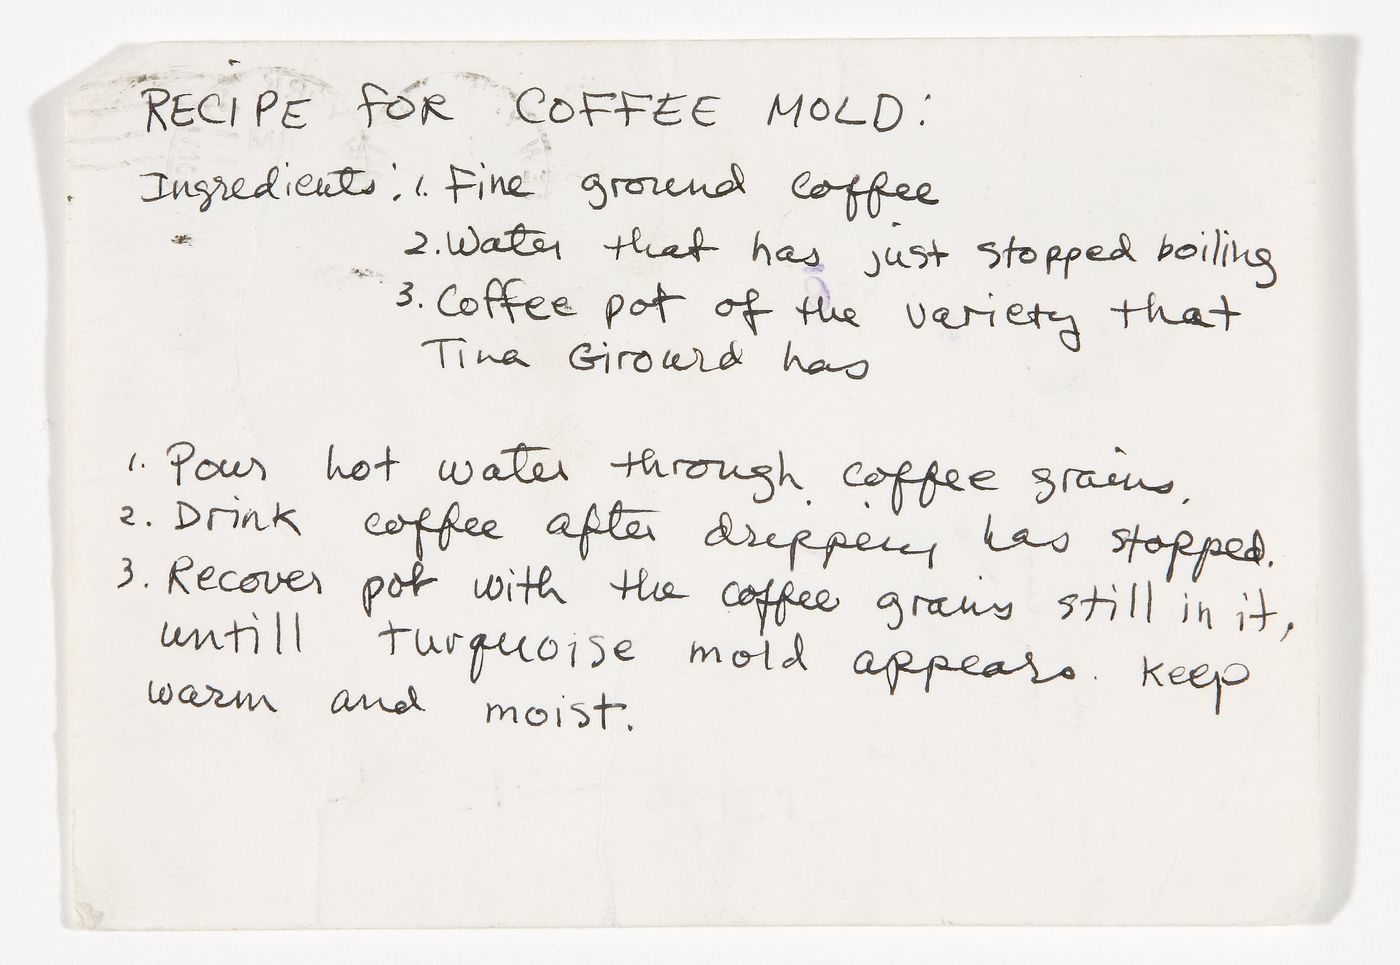 RECIPE FOR COFFEE MOLD:
Ingredients: 1. Fine ground coffee
2. Water that has just stopped boiling
3. Coffee pot of the variety that
Tina Girourd has
1. Pour hot water through coffee grains.
2. Drink coffee after dripping has stopped.
3. Recover pot with the coffee grains still in it,
untill turquoise mold appears. Keep
warm and moist.